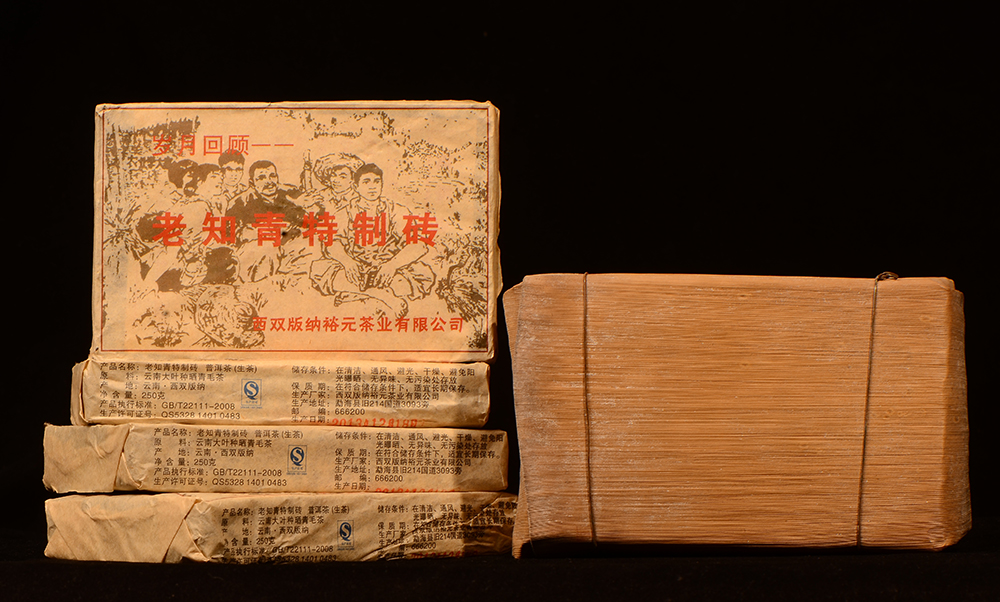 岁月回顾——
老知青特制砖
西双版纳裕元茶业有限公司
产品名称：老知青特制砖 普洱茶（生茶）
原 料：云南大叶种晒青毛茶
产 地：云南·西双版纳
净含量：250克
产品执行标准：GB/T22111-2008
生产许可证号：QS5328 1401 0483
储存条件：在清洁、通风、避光、干燥、避免阳
光曝晒、无异味、无污染处存放
保质期：在符合储存条件下，适宜长期保存。
生产厂家：西双版纳裕元茶业有限公司
生产地址：勐海县旧214国道3093旁
邮 编：666200
生产日期：
产品名称：老知青特制砖 普洱茶（生茶）
原 料：云南大叶种晒青毛茶
产 地：云南·西双版纳
净含量：250克
产品执行标准：GB/T22111-2008
生产许可证号：QS5328 1401 0483
储存条件：在清洁、通风、避光、干燥、避免阳
光曝晒、无异味、无污染处存放
保质期：在符合储存条件下，适宜长期保存。
生产厂家：西双版纳裕元茶业有限公司
生产地址：勐海县旧214国道3093旁
邮 编：666200
生产日期：
产品名称：老知青特制砖 普洱茶（生茶）
原 料：云南大叶种晒青毛茶
产 地：云南·西双版纳
净含量：250克
产品执行标准：GB/T22111-2008
生产许可证号：QS5328 1401 0483
储存条件：在清洁、通风、避光
光曝晒、无异味
保质期：在符合储存条件下
生产厂家：西双版纳裕元茶
生产地址：勐海县旧214国
邮 编：666200